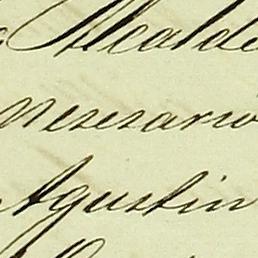 Alcalde
nesesario
Agustin